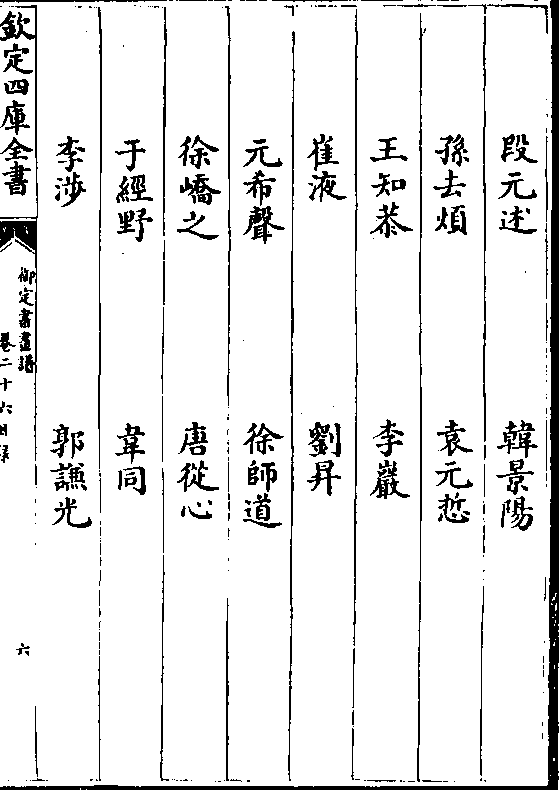 段元述 韓景陽
孫去煩 袁元悊
王知恭 李巖
崔液 劉昇
元希聲 徐師道
徐嶠之 唐從心
于經野 韋同
李涉 郭謙光
欽定四庫全書
御定書畫譜
卷二十六目錄
六